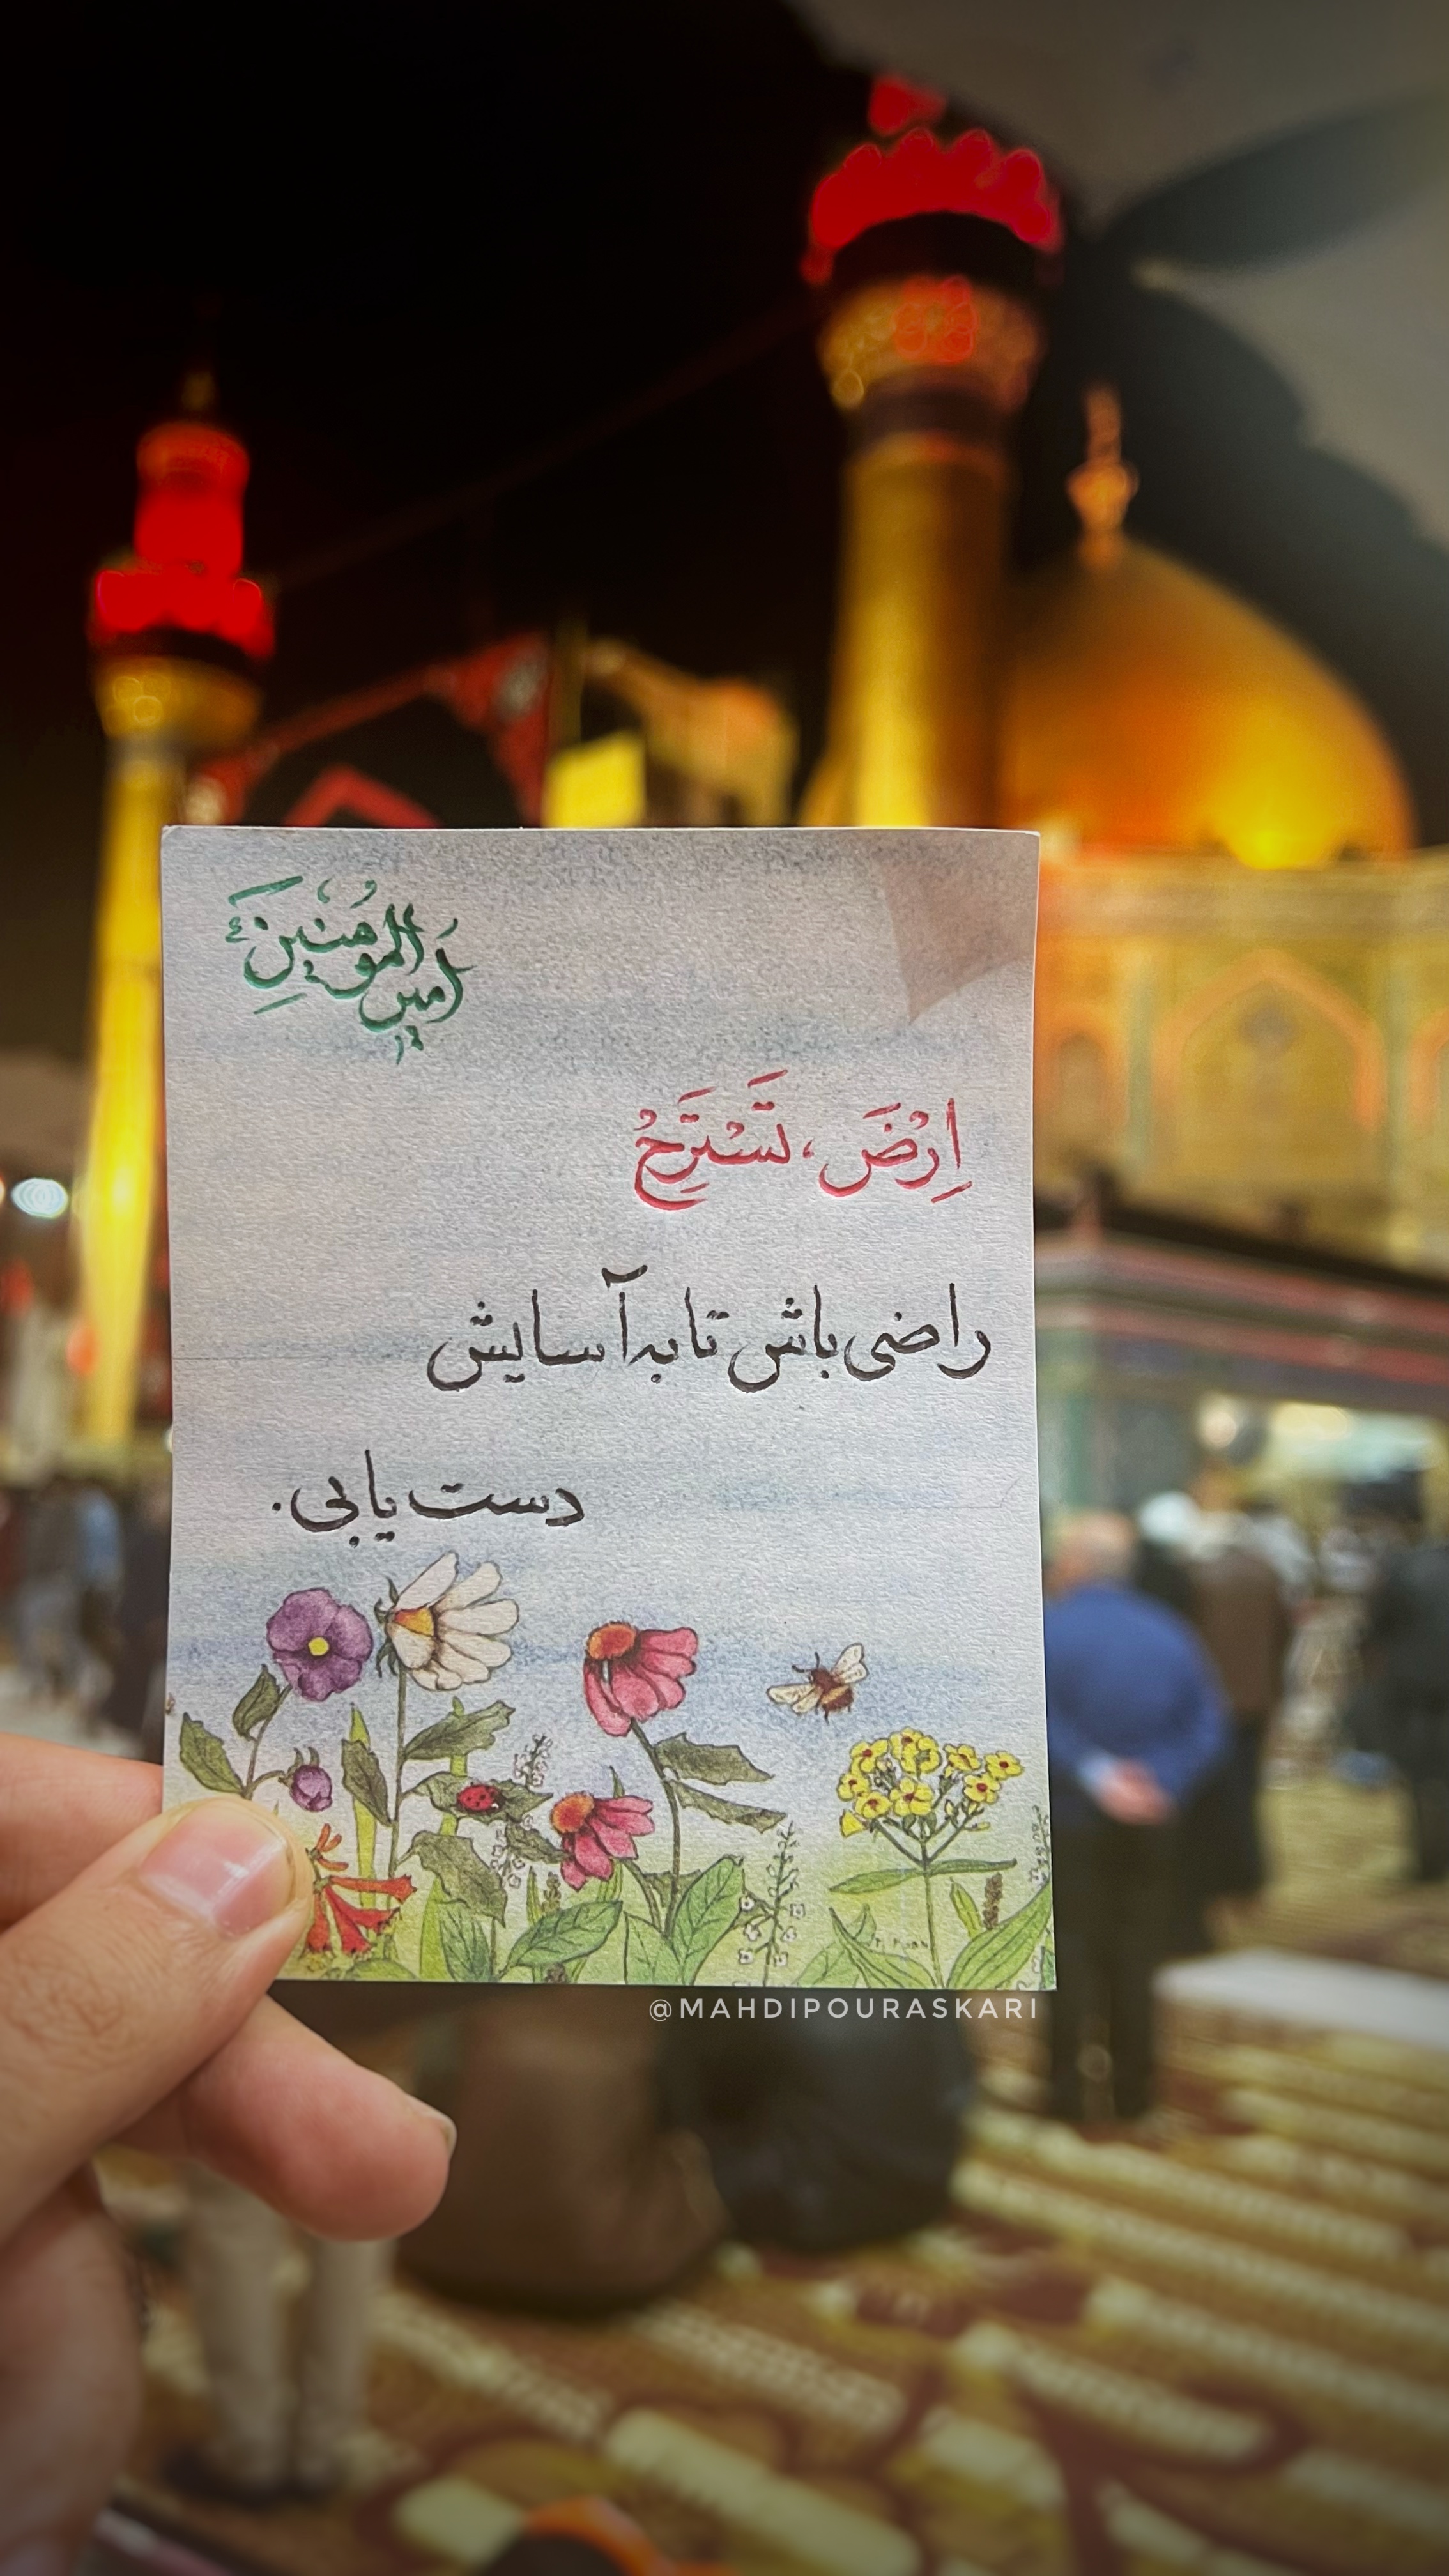 امیرالمؤمنینؑ
اِرْضَ، تَسْتَرِحْ
راضی باش تا به آسایش
دست یابی.
@MAHDIPOURASKARI